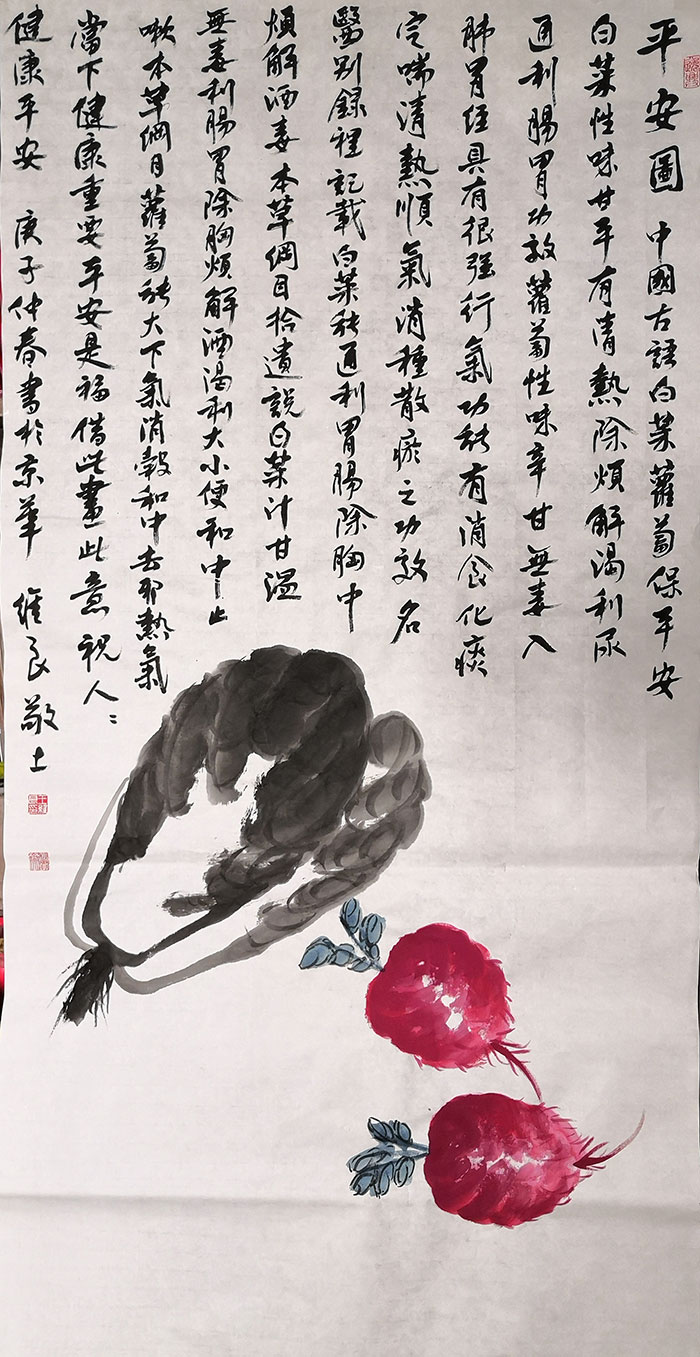 平安圖 中國古語白菜蘿蔔保平安
白菜性味甘平有清熱除煩解渴利尿
通利腸胃功效蘿蔔性味辛甘無毒入
肺胃经具有很强行氣功能有消食化痰
定喘清熱順氣消種散瘀之功效名
醫别録裡記载白菜能通利胃腸除胸中
煩解酒毒本草綱目拾遺説白菜汁甘温
無毒利腸胃除胸煩解酒渴利大小便和中止
嗽本草綱目蘿蔔能大下氣消穀和中去邪熱氣
當下健康重要平安是福借此畫此意祝人〻
健康平安 庚子仲春書於京華 維良敬上